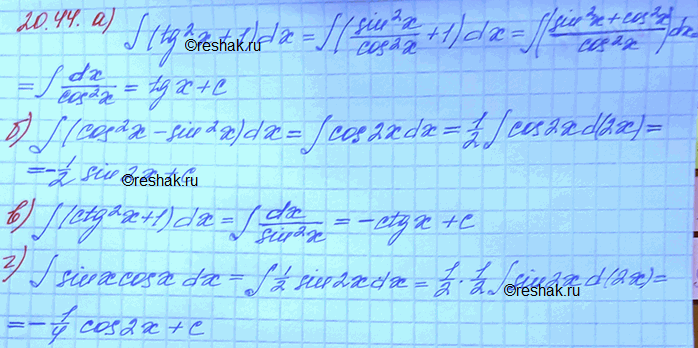 20.44. а) ∫(tg²x+1)dx = ∫(sin²x/cos²x + 1)dx = ∫(sin²x+cos²x/cos²x)dx =
©reshak.ru
= ∫ dx/cos²x = tgx+c
б) ∫(cos²x − sin²x)dx = ∫cos2xdx = 1/2 ∫cos2xd(2x) =
= −1/2 sin2x+c
©reshak.ru
в) ∫(ctg²x+1)dx = ∫ dx/sin²x = −ctgx+c
г) ∫sinxcosx dx = ∫ 1/2 sin2xdx = 1/2 · 1/2 ∫sin2xd(2x) =
©reshak.ru
= −1/4 cos2x+c